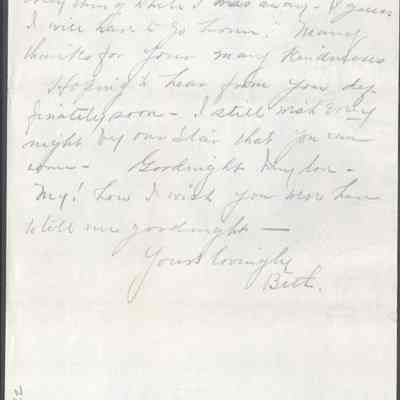 everything while I was away - I guess
I will have to go home! Many
thanks for your many kindnesses
Hoping to hear from you def
finately soon - I still wish every
night by our Star that you can
come - Goodnight
My! how I wish you were here
to tell me goodnight -
Yours lovingly
Beth.